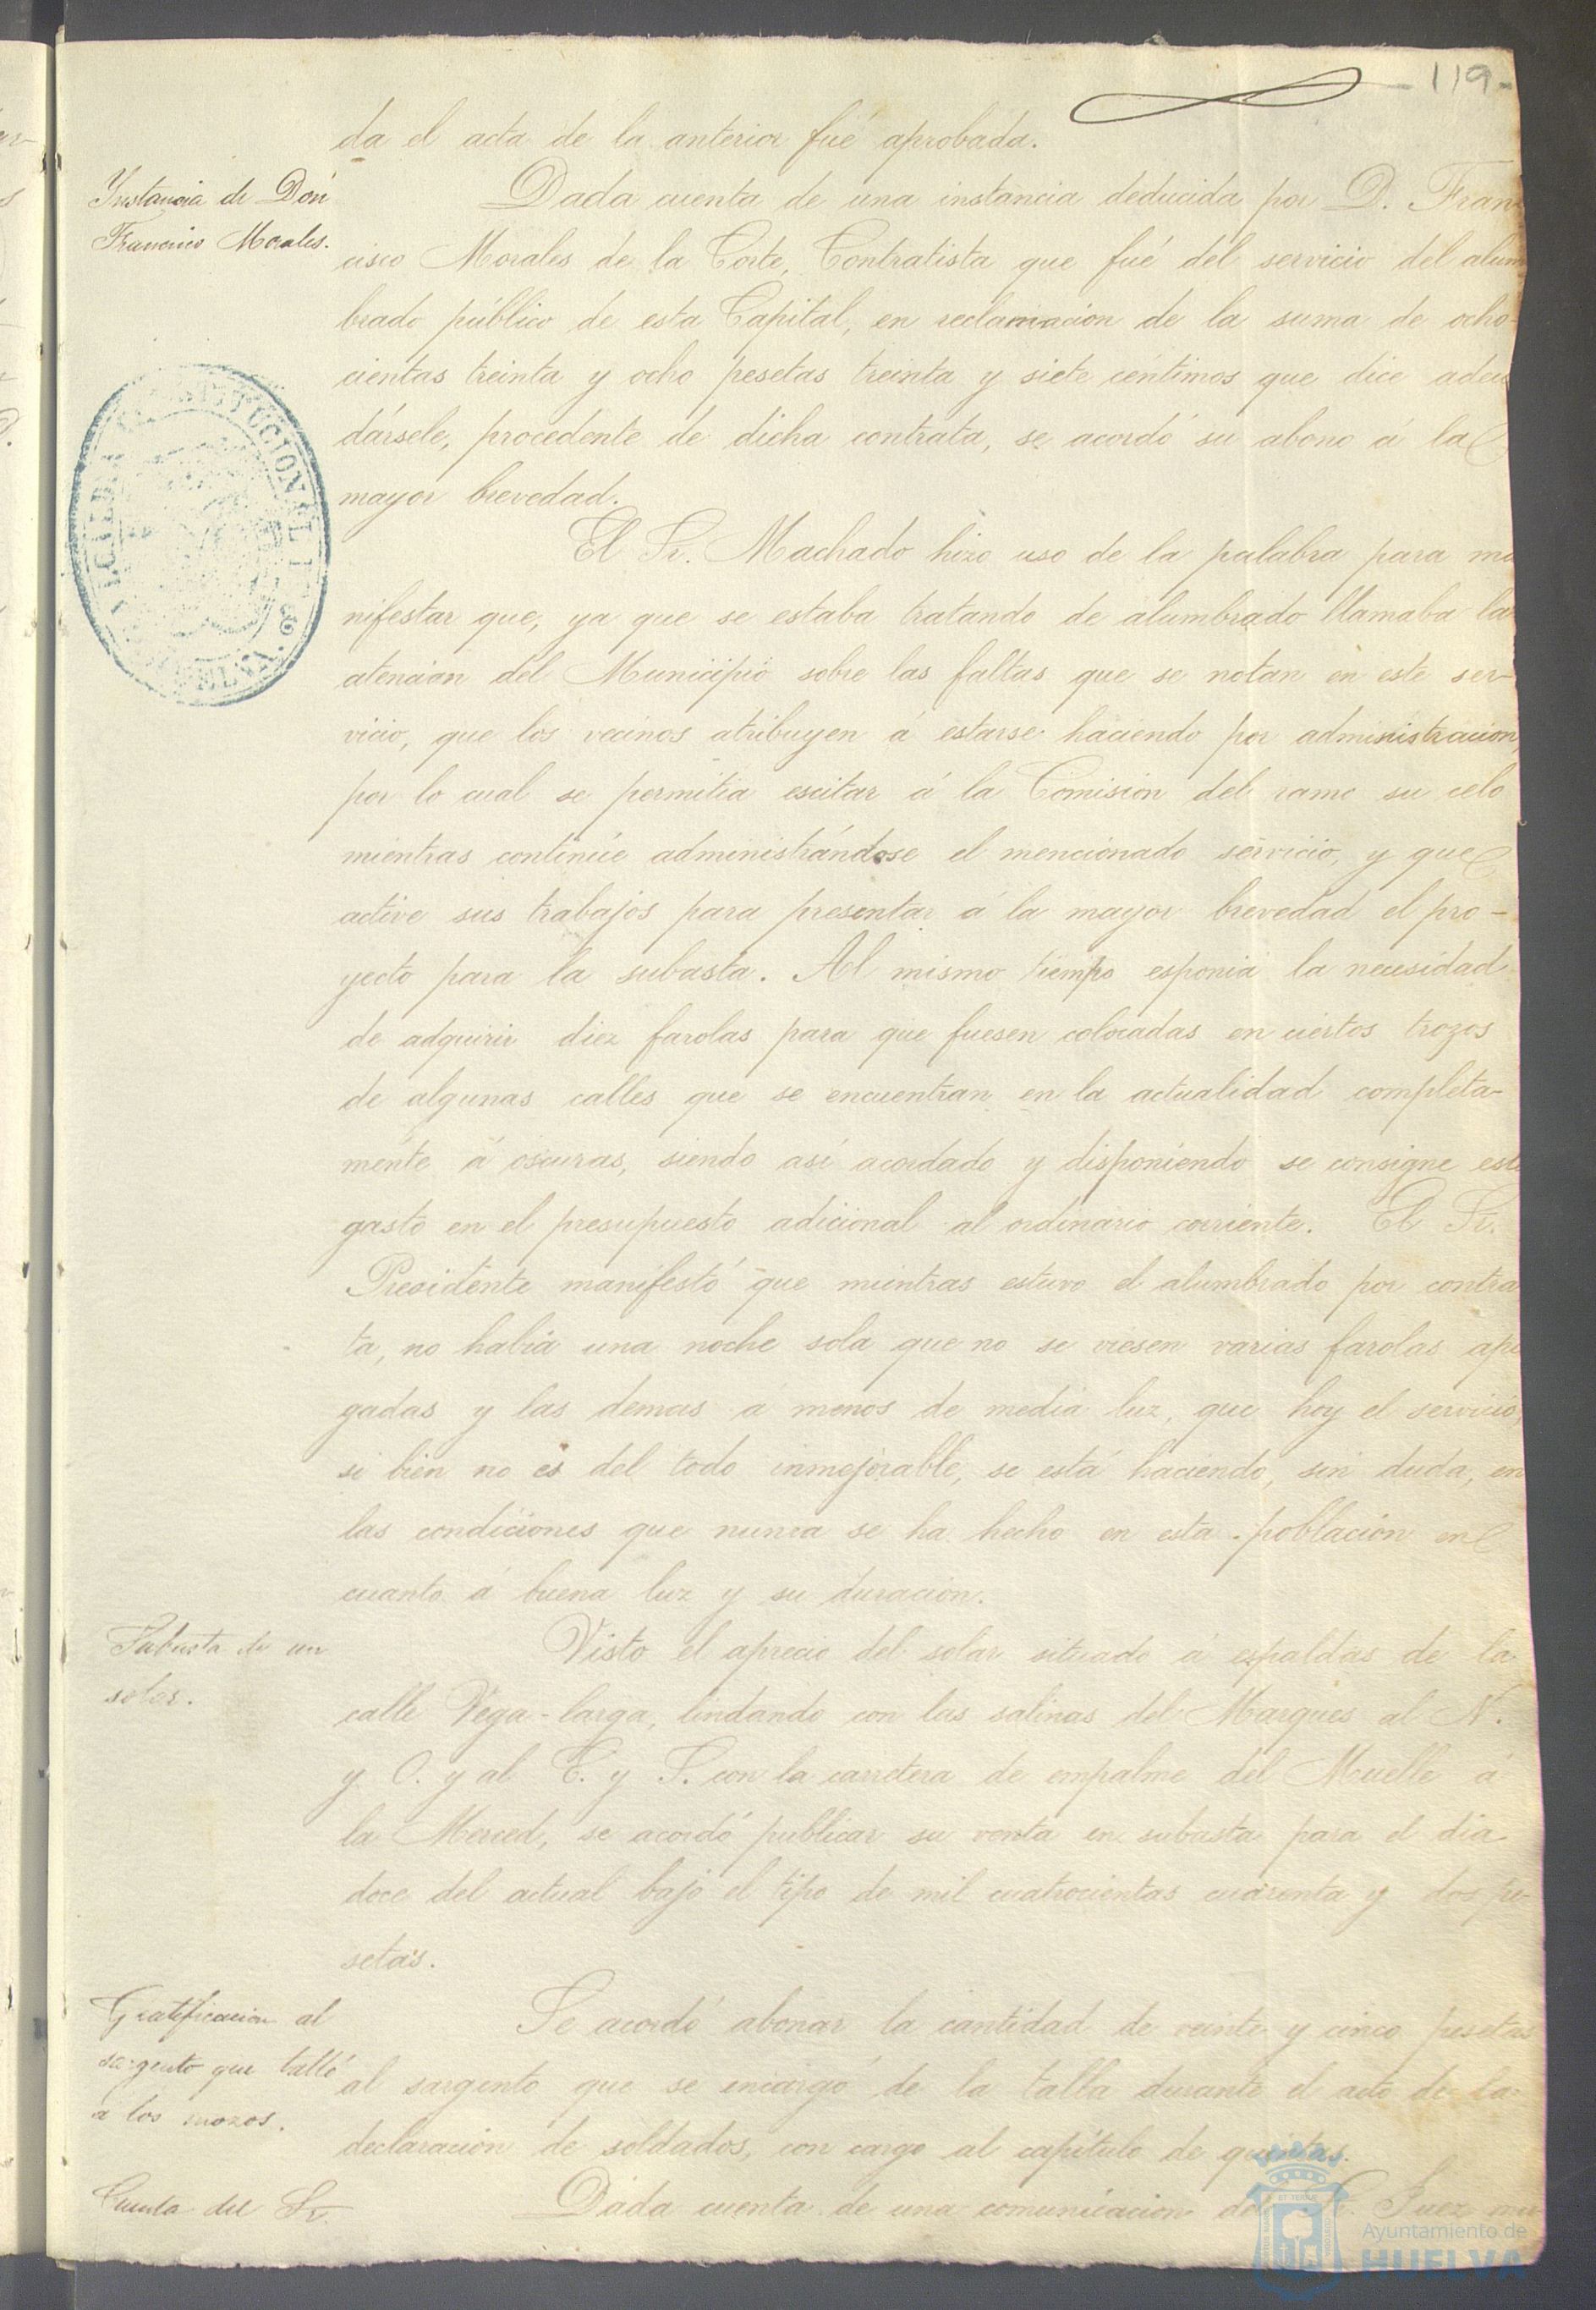 119-
da el acta de la anterior fué aprobada.
Instancia de Don
Francisco Morales.
Dada cuenta de una instancia deducida por D. Fran
cisco Morales de la Corte, Contratista que fué del servicio del alum
brado público de esta Capital, en reclamación de la suma de ocho-
cientas treinta y ocho pesetas treinta y siete céntimos que dice adeu
dársele, procedente de dicha contrata, se acordó su abono á la
mayor brevedad.
ALCALDIA CONSTITUCIONAL DE HUELVA.
El Sr. Machado hizo uso de la palabra para ma
nifestar que, ya que se estaba tratando de alumbrado llamaba la
atencion del Municipio sobre las faltas que se notan en este ser-
vicio, que los vecinos atribuyen á estarse haciendo por administracion,
por lo cual se permitia escitar á la Comision del ramo su celo
mientras continúe administrándose el mencionado servicio, y que
active sus trabajos para presentar á la mayor brevedad el pro-
yecto para la subasta. Al mismo tiempo esponia la necesidad
de adquirir diez farolas para que fuesen colocadas en ciertos trozos
de algunas calles que se encuentran en la actualidad completa-
mente á oscuras, siendo así acordado y disponiendo se consigne este
gasto en el presupuesto adicional al ordinario corriente. El Sr.
Presidente manifestó que mientras estuvo el alumbrado por contra
ta, no habia una noche sola que no se viesen varias farolas apa
gadas y las demas á menos de media luz, que hoy el servicio,
si bien no es del todo inmejorable, se está haciendo, sin duda, en
las condiciones que nunca se ha hecho en esta poblacion en
cuanto á buena luz y su duracion.
Subasta de un
solar.
Visto el aprecio del solar situado á espaldas de la
calle Vega-larga, lindando con las salinas del Marques al N.
y O. y al E. y S. con la carretera de empalme del Muelle á
la Merced, se acordó publicar su venta en subasta para el dia
doce del actual bajo el tipo de mil cuatrocientas cuarenta y dos pe-
setas.
Gratificacion al
sargento que talló
á los mozos.
Se acordó abonar la cantidad de veinte y cinco pesetas
al sargento que se encargó de la talla durante el acto de la
declaracion de soldados, con cargo al capítulo de quintas.
Cuenta del Sr.
Dada cuenta de una comunicacion del Sr. Juez mu
Ayuntamiento de
HUELVA